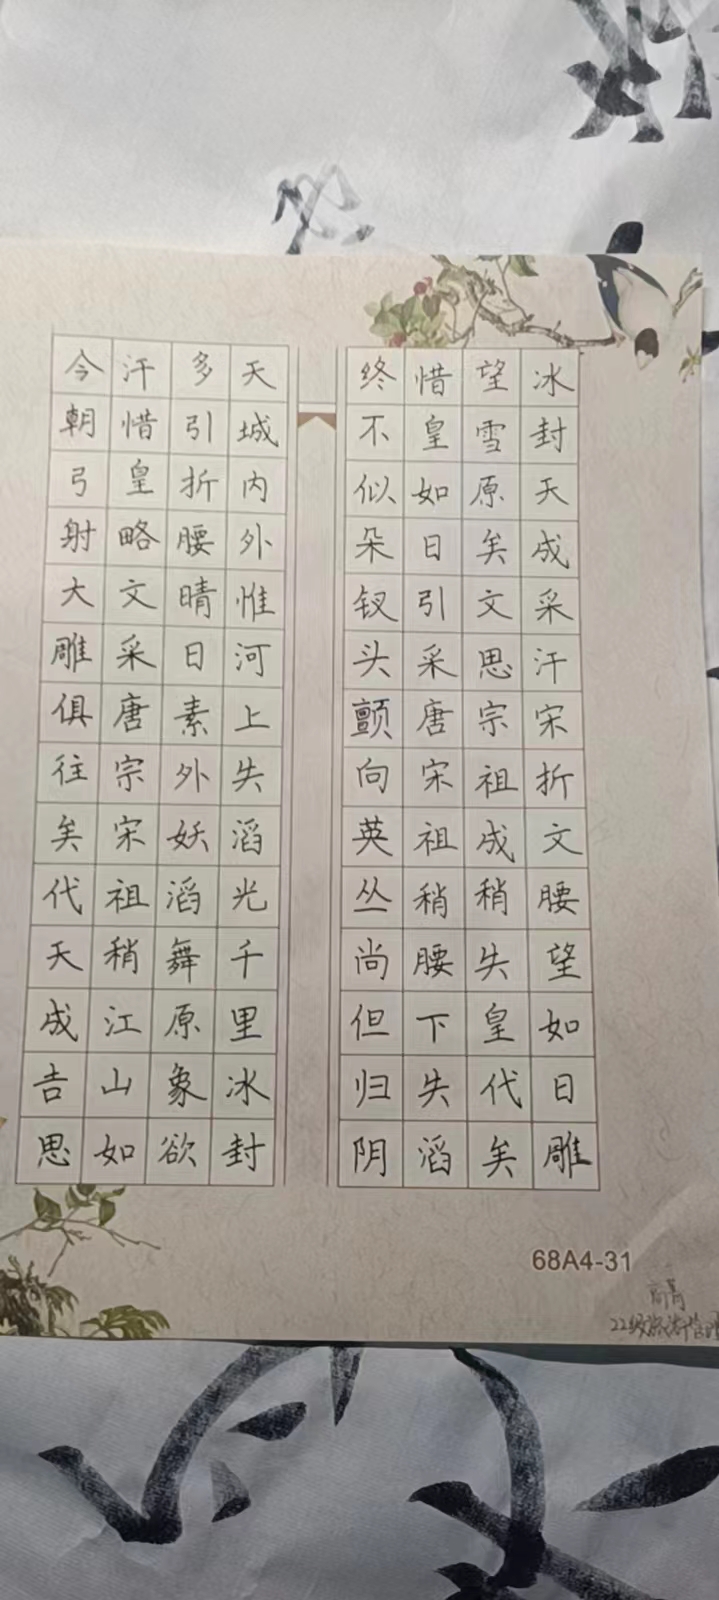 冰封天成采汗宋折文腰望如日雕
望雪原矣文思宗祖成稍失皇代矣
惜皇如日引采唐宋祖稍腰下失滔
终不似朵钗头颤向英丛尚但归阴
天城内外惟河上失滔光千里冰封
多引折腰晴日素外妖滔舞原象欲
汗惜皇略文采唐宗宋祖稍江山如
今朝弓射大雕俱往矣代天成吉思
68A4-31